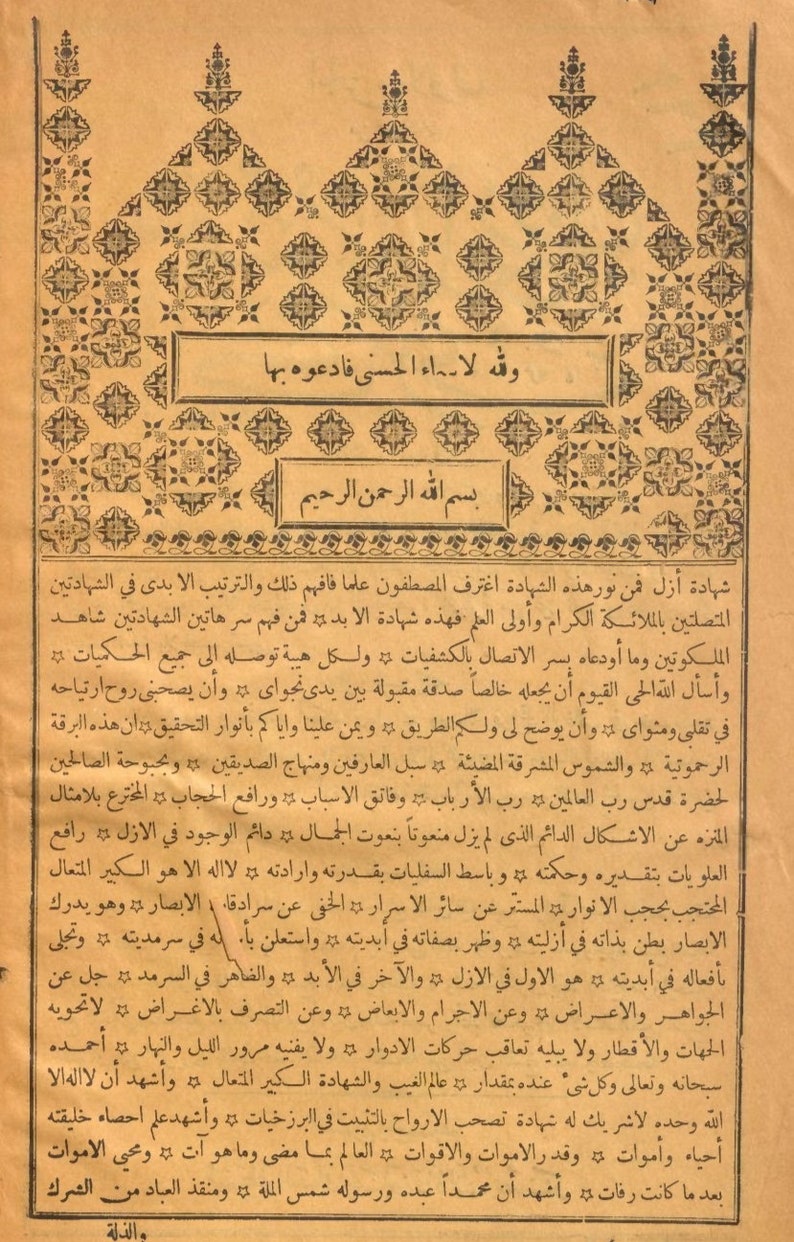 ولله لاسماء الحسنى فادعوه بها
بسم الله الرحمن الرحيم
شهادة أزل فمن نور هذه الشهادة اغترف المصطفون علما فافهم ذلك والترتيب الابدى في الشهادتين
المتصلتين بالملائكة الكرام وأولى العلم فهذه شهادة الابد ☆ فمن فهم سر هاتين الشهادتين شاهد
الملكوتين وما أودعاه بسر الاتصال بالكشفيات ☆ ولكل هيبة توصله الى جميع الحكميات ☆
وأسأل الله الحى القيوم أن يجعله خالصاً صدقة مقبولة بين يدى نجواى ☆ وأن يصحبنى روح ارتياحه
في تقلبى ومثواى ☆ وأن يوضح لى ولكم الطريق ☆ ويمن علينا واياكم بأنوار التحقيق ☆ ان هذه البرقة
الرحموتية ☆ والشموس المشرقة المضيئة ☆ سبل العارفين ومنهاج الصديقين ☆ وبحبوحة الصالحين
لحضرة قدس رب العالمين ☆ رب الأرباب ☆ وفاتق الاسباب ☆ ورافع الحجاب ☆ المخترع بلامثال
المنزه عن الاشكال الدائم الذى لم يزل منعوتاً بنعوت الجمال ☆ دائم الوجود في الازل ☆ رافع
العلويات بتقديره وحكمته ☆ وباسط السفليات بقدرته وارادته ☆ لااله الا هو الكبير المتعال
المحتجب بحجب الانوار ☆ المستتر عن سائر الاسرار ☆ الخفى عن سرادقات الابصار ☆ وهو يدرك
الابصار بطن بذاته في أزليته ☆ وظهر بصفاته في أبديته ☆ واستعلن له في سرمديته ☆ وتجلى
بأفعاله في أبديته ☆ هو الاول في الازل ☆ والآخر في الأبد ☆ والظاهر في السرمد ☆ جل عن
الجواهر والاعراض ☆ وعن الاجرام والابعاض ☆ وعن التصرف بالاغراض ☆ لاتحويه
الجهات والأقطار ولا يبليه تعاقب حركات الادوار ☆ ولا يفنيه مرور الليل والنهار ☆ أحمده
سبحانه وتعالى وكل شئ عنده بمقدار ☆ عالم الغيب والشهادة الكبير المتعال ☆ وأشهد أن لااله الا
الله وحده لاشريك له شهادة تصحب الارواح بالتثبيت في البرزخيات ☆ وأشهد علم احصاء خليقته
أحياء وأموات ☆ وقدر الاموات والاقوات ☆ العالم بما مضى وما هو آت ☆ ومحيى الاموات
بعد ما كانت رفات ☆ وأشهد أن محمداً عبده ورسوله شمس الملة ☆ ومنقذ العباد من الشرك
والذلة